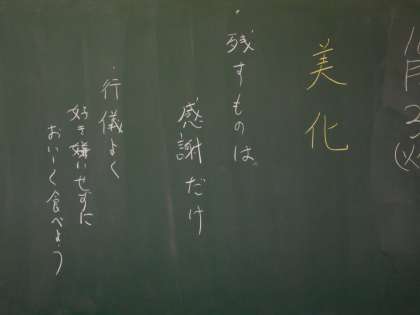 11月2
(火
美化
・残すものは、
感謝だけ
・行儀よく
好き嫌いせずに
おいしく食べよう